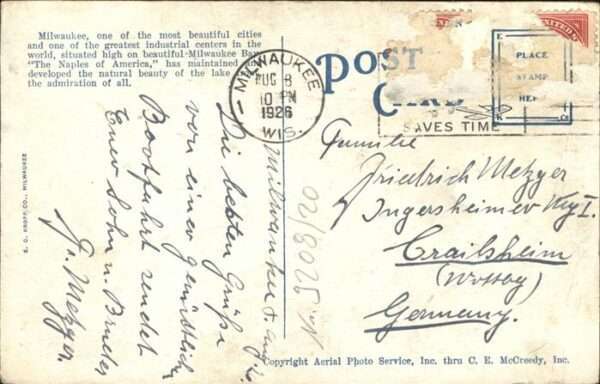 Milwaukee, one of the most beautiful cities
and one of the greatest industrial centers in the
world, situated high on beautiful Milwaukee Bay,
"The Naples of America," has maintained and
developed the natural beauty of the lake
the admiration of all.
POST
CARD
MILWAUKEE
AUG 8
10 PM
1926
WIS.
SAVES TIME
PLACE
STAMP
HERE
E. C. KROPP CO., MILWAUKEE
Milwaukee d.
Die besten Grüße
von einer gemütlichen
Bootfahrt sendet
Euer Sohn u. Bruder
Fr. Metzger.
Familie
Friedrich Metzger
Ingersheimer
Crailsheim
Germany.
Copyright Aerial Photo Service, Inc. thru C. E. McCreedy, Inc.